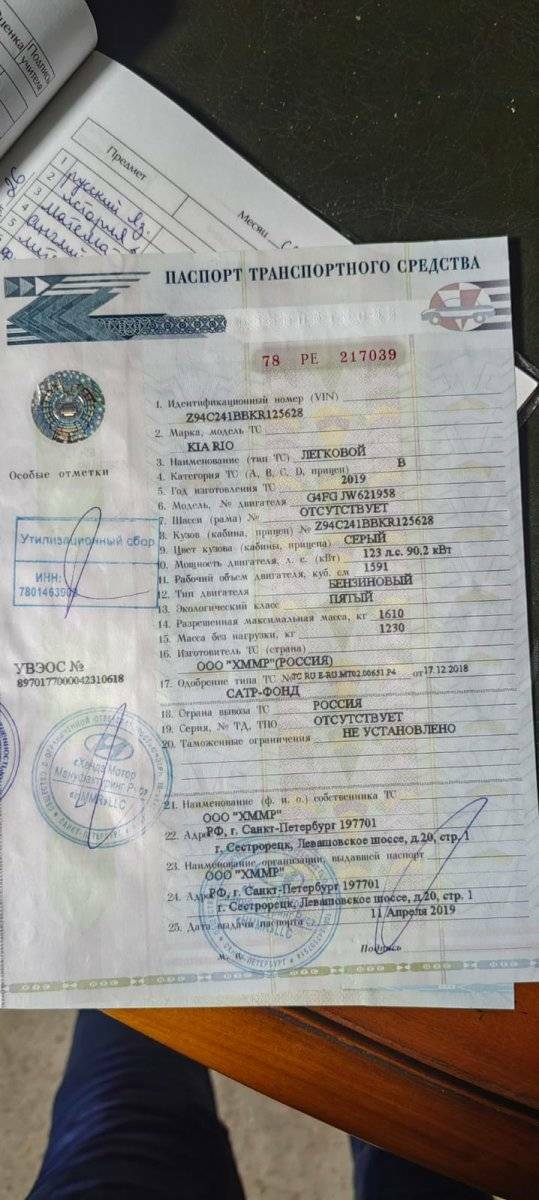 Оценка
Подпись учителя
Предмет
Месяц
26
1 русский яз.
2 история
3
4
5
ПАСПОРТ ТРАНСПОРТНОГО СРЕДСТВА
78 РЕ 217039
1. Идентификационный номер (VIN)
Z94C241BBKR125628
2. Марка, модель ТС
KIA RIO
3. Наименование (тип ТС) ЛЕГКОВОЙ
4. Категория ТС (A, B, C, D, прицеп) B
5. Год изготовления ТС 2019
6. Модель, № двигателя G4FG JW621958
7. Шасси (рама) № ОТСУТСТВУЕТ
8. Кузов (кабина, прицеп) № Z94C241BBKR125628
9. Цвет кузова (кабины, прицепа) СЕРЫЙ
10. Мощность двигателя, л. с. (кВт) 123 л.с. 90,2 кВт
11. Рабочий объем двигателя, куб. см 1591
12. Тип двигателя БЕНЗИНОВЫЙ
13. Экологический класс ПЯТЫЙ
14. Разрешенная максимальная масса, кг 1610
15. Масса без нагрузки, кг 1230
16. Изготовитель ТС (страна)
ООО "ХММР"(РОССИЯ)
17. Одобрение типа ТС № ТС RU E-RU.MT02.00651.P4 от 17.12.2018
САТР-ФОНД
18. Страна вывоза ТС РОССИЯ
19. Серия, № ТД, ТПО ОТСУТСТВУЕТ
20. Таможенные ограничения НЕ УСТАНОВЛЕНО
21. Наименование (ф. и. о.) собственника ТС
ООО "ХММР"
22. Адрес РФ, г. Санкт-Петербург 197701
г. Сестрорецк, Левашовское шоссе, д.20, стр. 1
23. Наименование организации, выдавшей паспорт
ООО "ХММР"
24. Адрес РФ, г. Санкт-Петербург 197701
г. Сестрорецк, Левашовское шоссе, д.20, стр. 1
25. Дата выдачи паспорта 11 Апреля 2019
М. П.
Подпись
Особые отметки
Утилизационный сбор
ИНН:
УВЭОС №
8970177000042310618
«Хендэ Мотор
Мануфактуринг Рус»
«HMMR» LLC